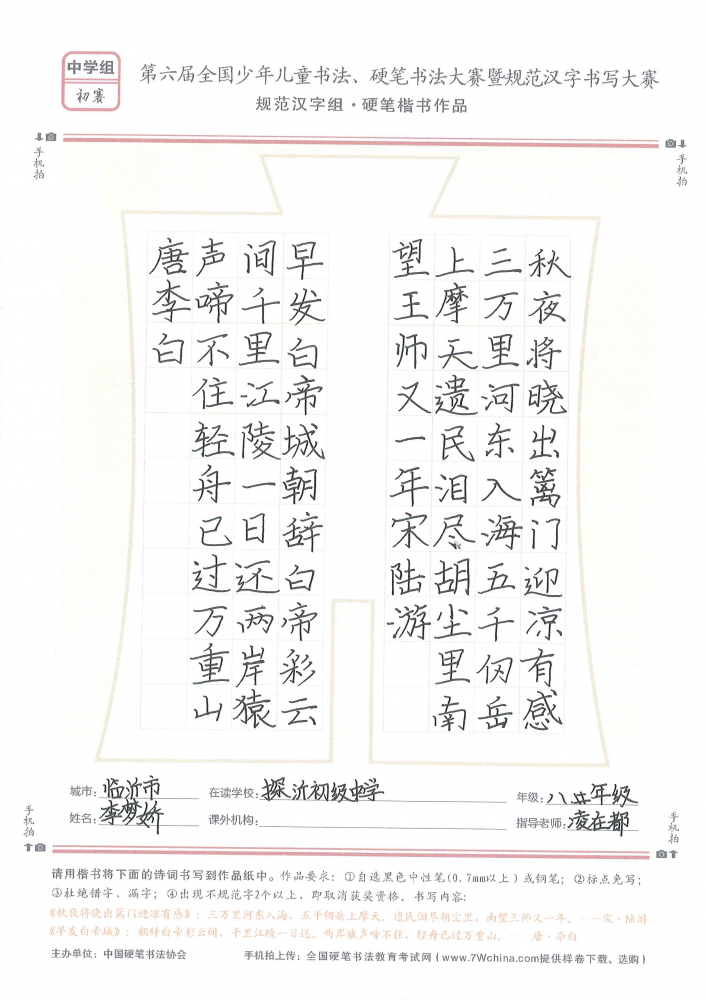 中学组
初赛
第六届全国少年儿童书法、硬笔书法大赛暨规范汉字书写大赛
规范汉字组·硬笔楷书作品
手机拍
手机拍
秋夜将晓出篱门迎凉有感
三万里河东入海五千仞岳
上摩天遗民泪尽胡尘里南
望王师又一年宋陆游
早发白帝城朝辞白帝彩云
间千里江陵一日还两岸猿
声啼不住轻舟已过万重山
唐李白
城市：临沂市
在读学校：探沂初级中学
年级：八年级
姓名：李梦娇
课外机构：
指导老师：凌在都
手机拍
手机拍
请用楷书将下面的诗词书写到作品纸中。作品要求：①自选黑色中性笔(0.7mm以上)或钢笔；②标点免写；
③杜绝错字、漏字；④出现不规范字2个以上，即取消获奖资格。书写内容：
《秋夜将晓出篱门迎凉有感》：三万里河东入海，五千仞岳上摩天。遗民泪尽胡尘里，南望王师又一年。——宋·陆游
《早发白帝城》：朝辞白帝彩云间，千里江陵一日还。两岸猿声啼不住，轻舟已过万重山。——唐·李白
主办单位：中国硬笔书法协会
手机拍上传：全国硬笔书法教育考试网（www.7Wchina.com提供样卷下载、选购）